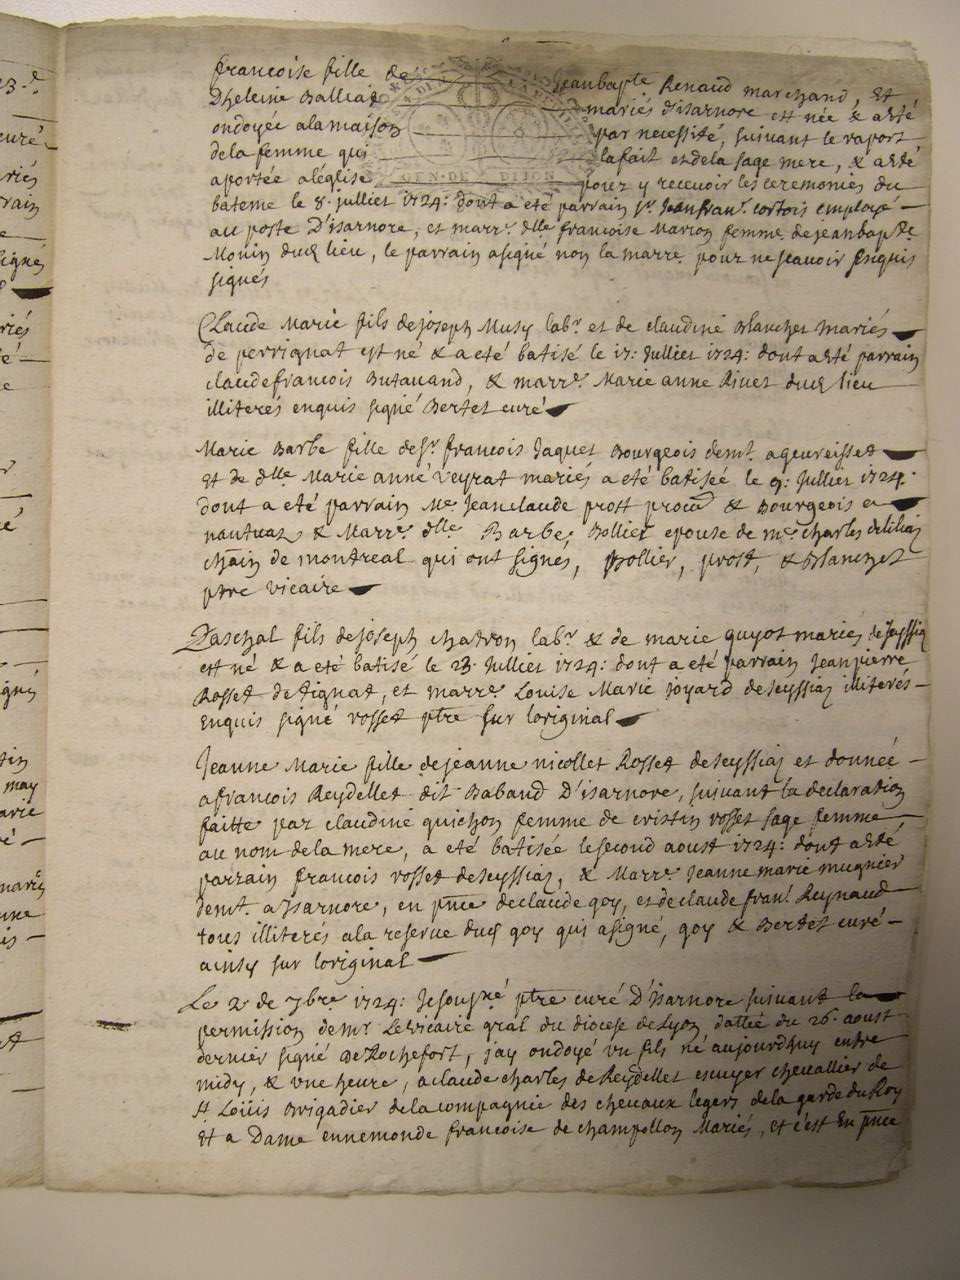 francoise fille de jeanbapte Renaud marchand, Et
D'heleine Balliat mariés d'isarnore est née & a esté
ondoyée ala maison par necessité, suivant le raport
dela femme qui la fait et dela sage mere, & a esté
aportée aléglise pour y recevoir les ceremonies du
GEN·DE DIJON
bâteme le 8. julliet 1724: dont a eté parrain sr. Jeanfranc. cortois employé
au poste D'isarnore, et marr. dlle francoise Marion femme dejeanbapte
Monin dud lieu, le parrain asigné non la marre. pour ne scavoir Enquis
signés
Claude Marie fils dejoseph Musy labr. et de claudine Blanchet Mariés
de perrignat est né & a eté batisé le 17: Julliet 1724: dont a esté parrain
claudefrancois Butavand, & marre. Marie anne Rivet dud lieu
illiterés enquis signé Bertet curé
Marie Barbe fille de sr. francois Jaquet Bourgeois demt. ageureisset
Et de dlle Marie anne veyrat mariés a eté batisée le 9: Julliet 1724.
dont a eté parrain Me. Jeanclaude prost & Bourgeois
nantuas & Marre. dlle. Barbe Bollier epouse de me. charles
de montreal qui ont signés, Bollier, prost, & Blanchet
ptre vicaire
Paschal fils dejoseph chatron labr. & de marie guyot mariés de seyssia
est né & a eté batisé le 23. Julliet 1724: dont a eté parrain Jeanpierre
Rosset de tignat, et marre. Louise Marie joyard deseyssia illiterés
Enquis signé rosset ptre sur loriginal
Jeanne Marie fille dejeanne nicollet Rosset deseyssia et donnée
afrancois Reydellet dit Baband D'isarnore, suivant la declaration
faitte par claudine quichon femme de cristin rosset sage femme
au nom dela mere, a eté batisée lesecond aoust 1724: dont a esté
parrain francois rosset deseyssia, & Marre. Jeanne marie mugnier
demt. a Isarnore, en pnce declaude goy, et declaude franc. Reynaud
tous illiterés ala reserve dud goy qui asigné, goy & Bertet curé
ainsy sur loriginal
Le 2 de 7bre 1724: Je sousné ptre curé D'isarnore suivant la
permission demr Le vicaire gral du diocese de Lyon dattée du 26. aoust
dernier signé De Rochefort, j'ay ondoyé un fils né aujourdhuy entre
midy, & une heure, aclaude charles de Reydellet escuyer chevallier de
st Loüis Brigadier dela compagnie des chevaux legers dela garde du Roy
Et a Dame ennemonde francoise de champollon Mariés, et c'est En pnce